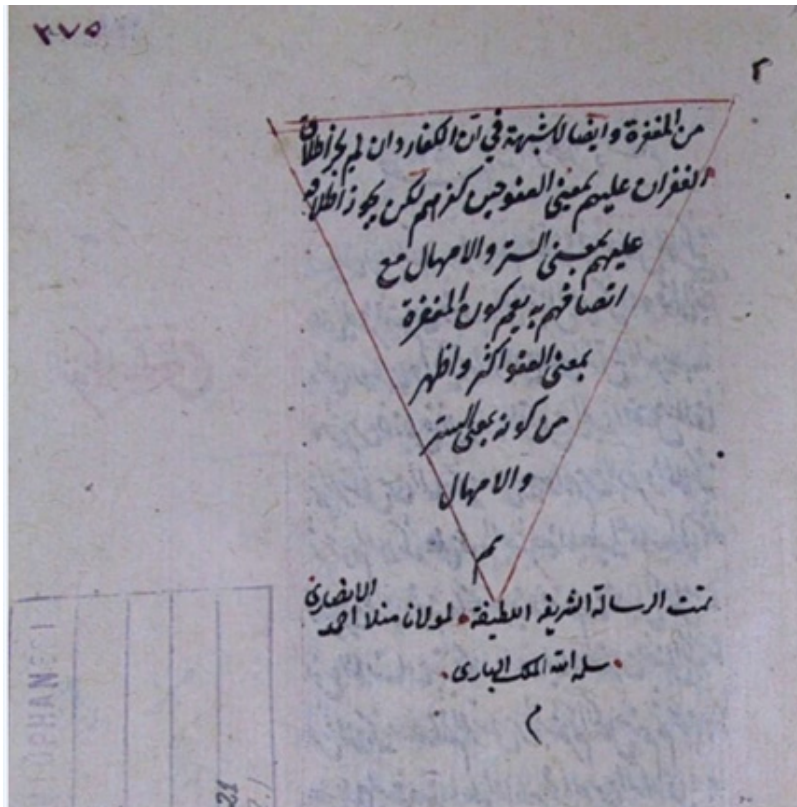 ٣٧٥
٢
من المغفرة وايضا لاشبهة في ان الكفار وان لم يجز اطلاق
الغفران عليهم بمعنى العفو حين كفرهم لكن يجوز اطلاقه
عليهم بمعنى الستر والامهال مع
اتصافهم به يعم كون المغفرة
بمعنى العفو اكثر واظهر
من كونه بمعنى الستر
والامهال
تم
تمت الرسالة الشريفه اللطيفة لمولانا منلا احمد الانصارى
سلمه الله الملك البارى
م
21